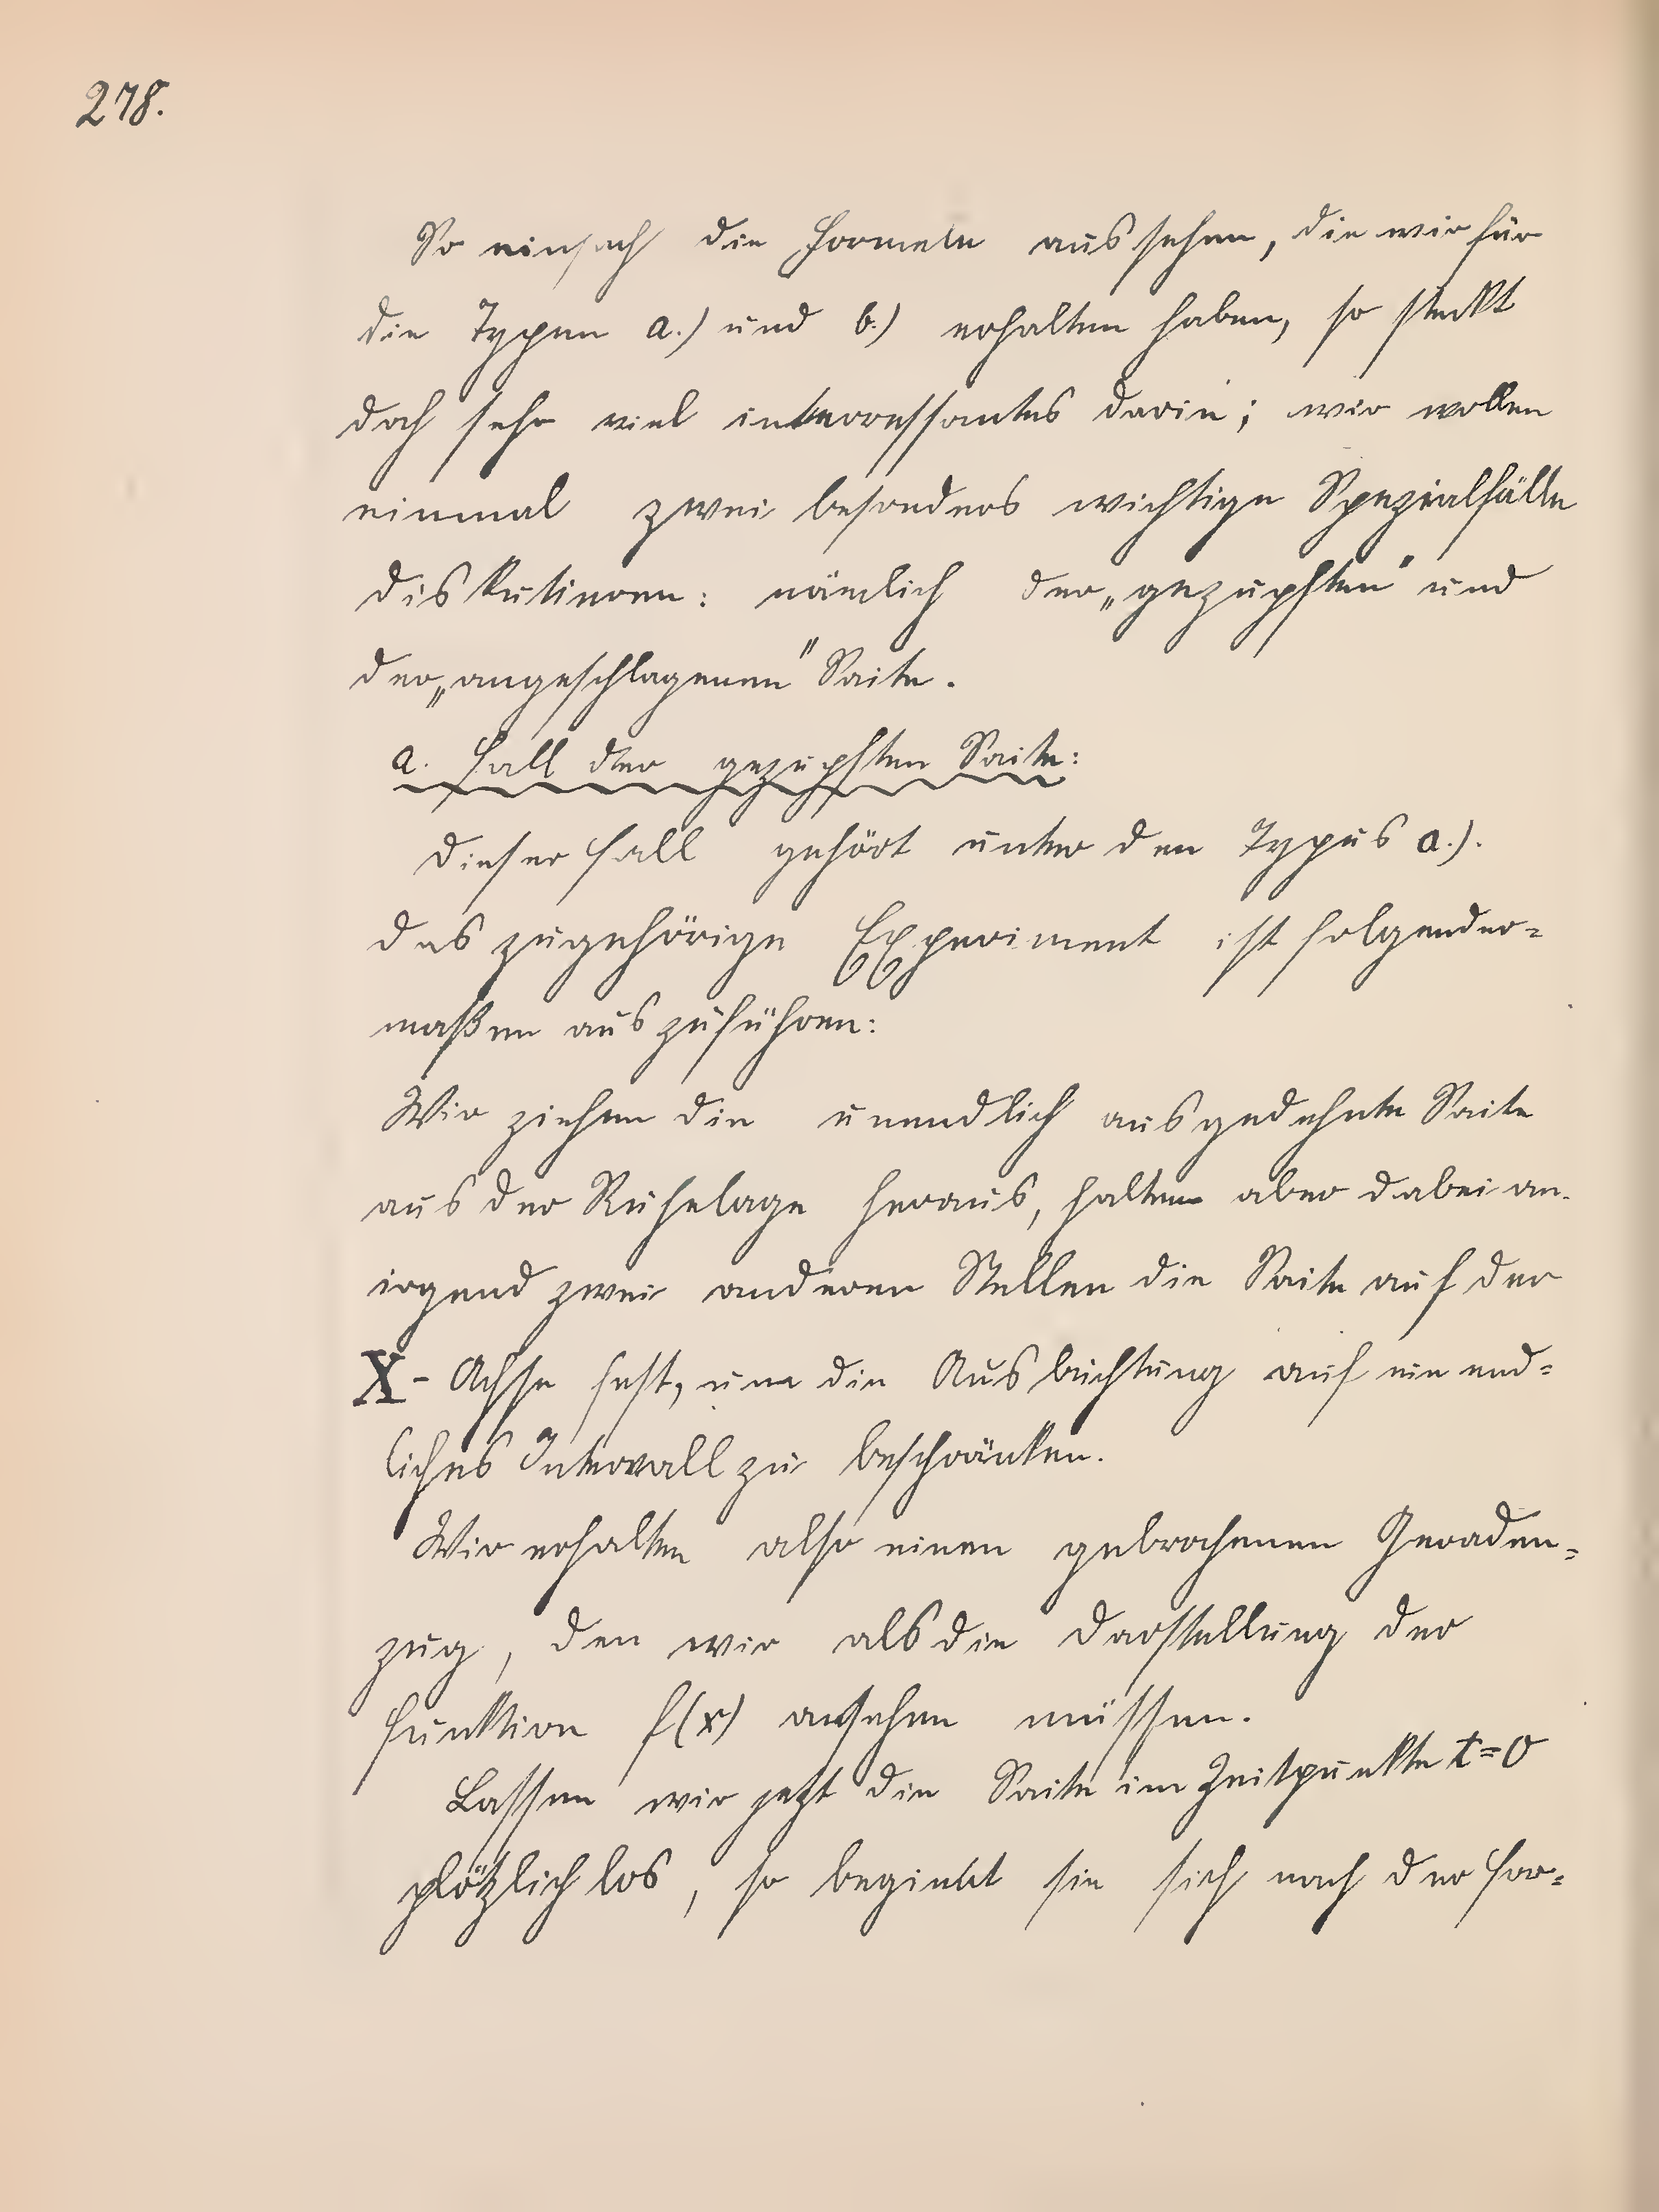 278.
So einfach die Formeln aussehen, die wir für
die Typen a.) und b.) erhalten haben, so steckt
doch sehr viel interressantes darin; wir wollen
einmal zwei besonders wichtige Spezialfälle
diskutieren: nämlich der „gezupften" und
der „angeschlagenen" Saite.
a. Fall der gezupften Saite:
Dieser Fall gehört unter den Typus a.).
Das zugehörige Experiment ist folgender=
maßen auszuführen:
Wir ziehen die unendlich ausgedehnte Saite
aus der Ruhelage heraus, halten aber dabei an
irgend zwei anderen Stellen die Saite auf der
X-Achse fest, um die Ausbuchtung auf ein end=
liches Intervall zu beschränken.
Wir erhalten also einen gebrochenen Geraden=
zug, den wir als die Darstellung der
Funktion f(x) ansehen müssen.
Lassen wir jetzt die Saite im Zeitpunkte t=0
plötzlich los, so beginnt sie sich nach der For=